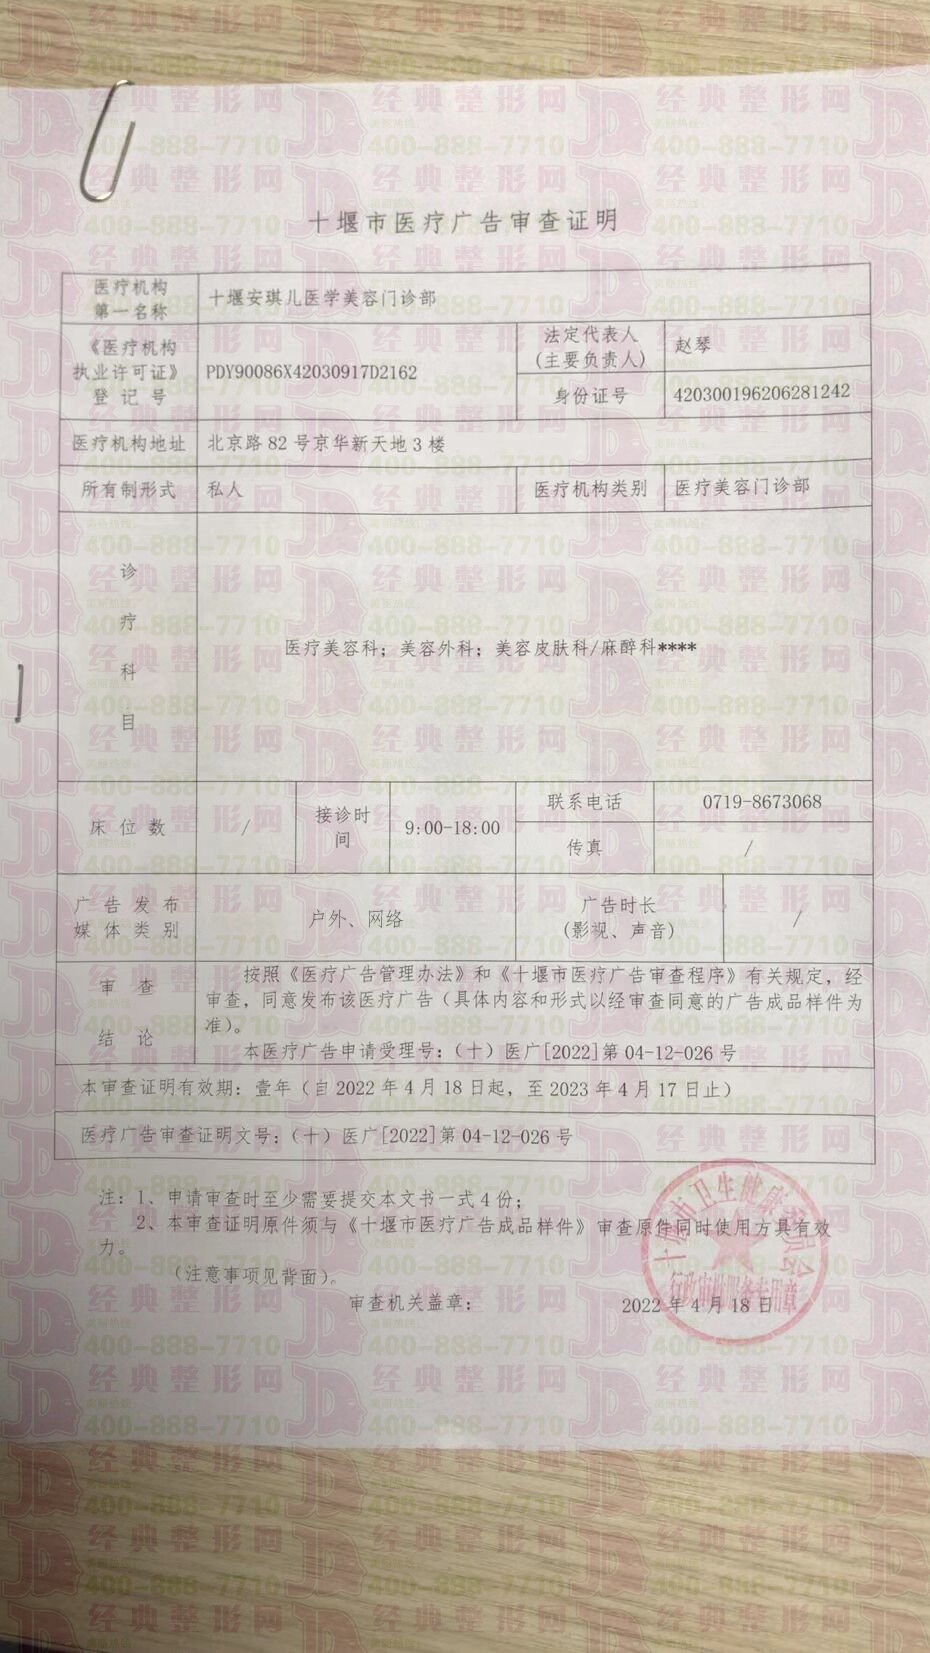 十堰市医疗广告审查证明
医疗机构
第一名称
十堰安琪儿医学美容门诊部
《医疗机构
执业许可证》
登记号
PDY90086X42030917D2162
法定代表人
(主要负责人)
赵琴
身份证号
420300196206281242
医疗机构地址
北京路82号京华新天地3楼
所有制形式
私人
医疗机构类别
医疗美容门诊部
诊
疗
科
目
医疗美容科；美容外科；美容皮肤科/麻醉科****
床位数
/
接诊时
间
9:00-18:00
联系电话
0719-8673068
传真
/
广告发布
媒体类别
户外、网络
广告时长
(影视、声音)
/
审查
结论
按照《医疗广告管理办法》和《十堰市医疗广告审查程序》有关规定，经
审查，同意发布该医疗广告（具体内容和形式以经审查同意的广告成品样件为
准）。
本医疗广告申请受理号：（十）医广[2022]第04-12-026号
本审查证明有效期：壹年（自2022年4月18日起，至2023年4月17日止）
医疗广告审查证明文号：（十）医广[2022]第04-12-026号
注：1、申请审查时至少需要提交本文书一式4份；
2、本审查证明原件须与《十堰市医疗广告成品样件》审查原件同时使用方具有效
力。
（注意事项见背面）。
审查机关盖章：
2022年4月18日
十堰市卫生健康委员会
行政审批服务专用章
经典整形网
400-888-7710